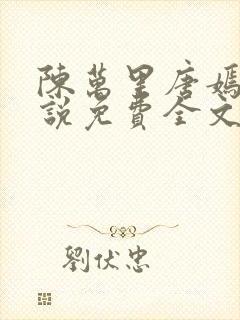 陳萬里唐嫣
說免費全文
劉伏忠